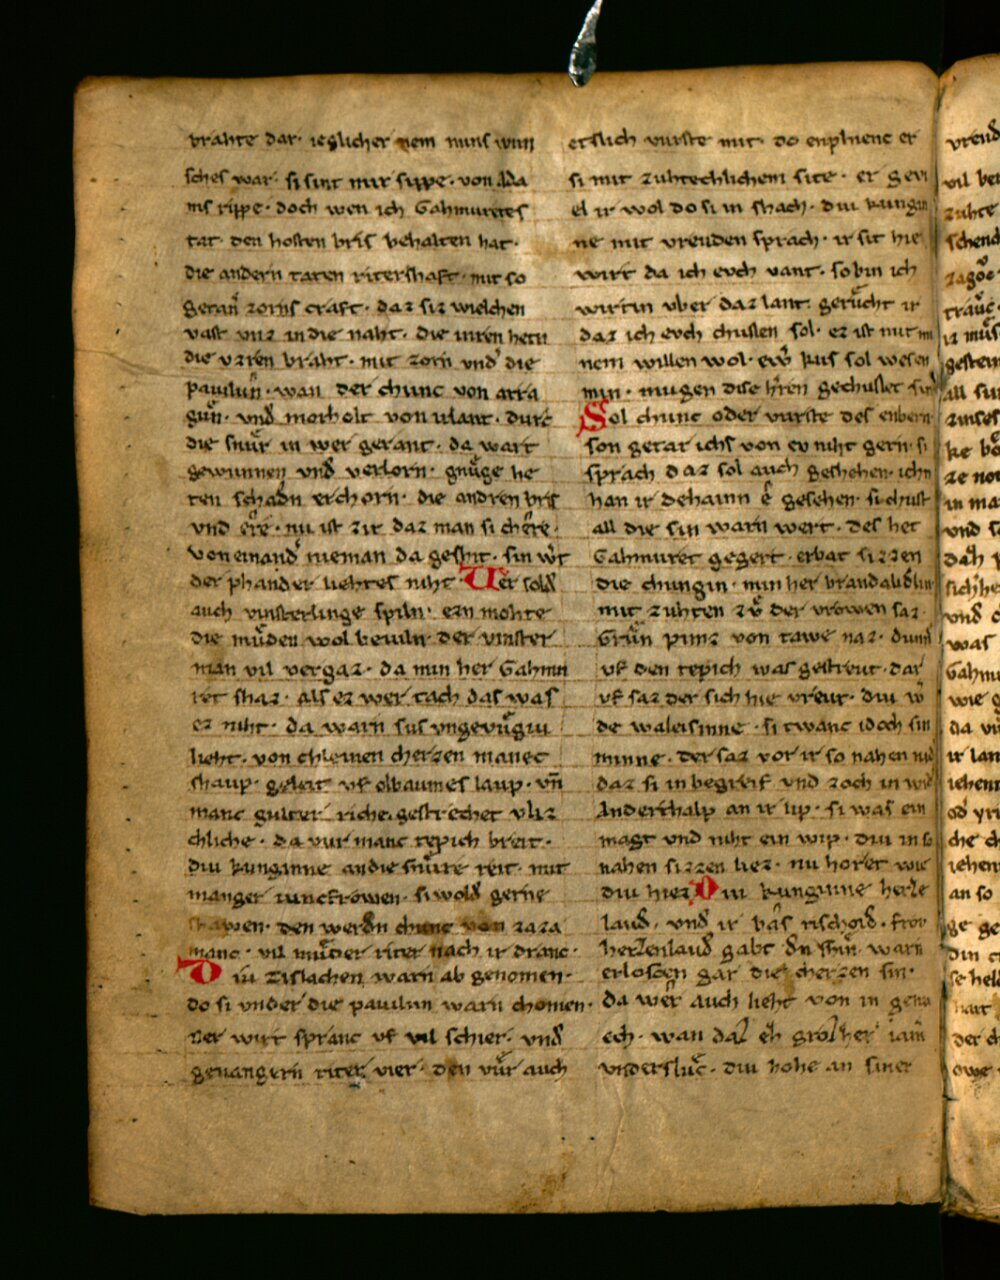 brahte dar· ieglicher nem mins wun
sches war· si sint mir sippe· von Ada
ms rippe· doch wen ich Gahmuretes
tat· den hosten bris behalten hat·
die andern taten ritershaft· mit so
getan zorns craft· daz siz wielchen
vast unz in die naht· die inren heten
die uzren braht· mit zorn und die
paulun· wan der chunc von arra
gun· und morholt von irlant· durc
die snür in wer gerant· da wart
gewunnen und verlorn· gnüge he
ten schadn erchorn· die andren bris
und ere· nu ist zit daz man si chere·
von einand nieman da geshit· sin wt
der phander liehtes niht· Wer sold
auch vinsterlinge spiln· ezn mohte
die müden wol beviln· der vinster
man vil vergaz· da min her Gahmu
ret shaz· als ez wer tach das was
ez niht· da warn sus ungevügiu
lieht· von chleinen cherzen manec
shaup· geleit uf olbaumes laup· vn
manc gulter riche gestrechet vliz
chliche· da vur manc tepich breit·
diu kunginne an die snüre reit· mit
manger iuncfrowen· si wold gerne
shawen· den werdn chunc von zaza
manc· vil müder riter nach ir dranc·
Diu tislachen warn ab genomen·
do si under die paulun warn chomen·
der wirt spranc uf vil schier· und
gevangern riter vier· den vür auch
etslich vurste mit· do enphienc er
si mit zuhtechlichem site· er gevi
el ir wol do si in shach· diu kungin
ne mit vreuden sprach· ir sit hie
wirt da ich evch vant· so bin ich
wirtin uber daz lant· gerücht ir
daz ich evch chussen sol· ez ist mit mi
nem willen wol· ew kus sol wesen
min· mugen dise hren gechusset sin
Sol chunc oder vurste des enbern
son getar ichs von ev niht gern· si
sprach daz sol auch geshehen· ichn
han ir dehainn e gesehen· si chust
all die sin warn wert· des het
Gahmuret gegert· er bat sizzen
die chungin· min her brandalidlin
mit zuhten zu der vrowen saz·
Grün pinz von tawe naz· dunn
uf den tepich was gestreut· dar
uf saz der sich hie vreut· diu w
de waleisinne· si twanc idoch sin
minne· der saz vor ir so nahen nid
daz si in begreif und zoch in wid
Anderthalp an ir lip· si was ein
magt und niht ein wip· diu in so
nahen sizzen liez· nu horet wie
diu hiez Diu kunginne herze
laud· und ir bas rischoid· fror
herzenlaud gabt dn shin· warn
erloszen gar die cherzen sin·
da wer auch lieht von in genu
ech· wan daz eh grozher iam
undersluc· diu hohe an siner